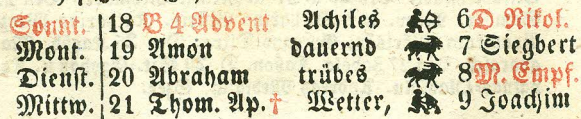 Sonnt. 18 B 4 Advent Achiles 6 D Nikol.
Mont. 19 Amon dauernd 7 Siegbert
Dienst. 20 Abraham trübes 8 M. Empf.
Mittw. 21 Thom. Ap. † Wetter, 9 Joachim